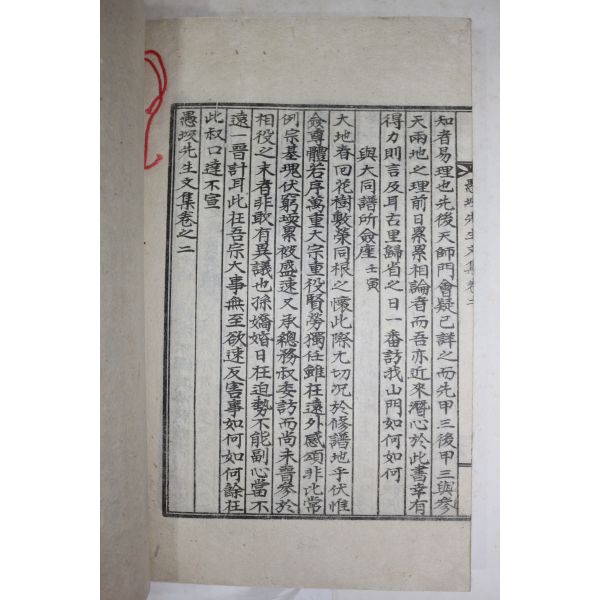 愚坡先生文集卷之二
知者易理也先後天師門會疑已詳之而先甲三後甲三與參
天兩地之理前日累累相論者而吾亦近來潛心於此書幸有
得力則言及耳古里歸省之日一番訪我山門如何如何
與大同譜所僉座 壬寅
大地春回花樹敷榮同根之懷此際尤切况於修譜地乎伏惟
僉尊體若序萬重大宗重役賢勞獨任雖在遠外感頌非比常
例宗基塊伏窮坡累被盛速又承總務叔委訪而尚未晉參於
相役之末者非敢有異議也孫嬌婚日在迫勢不能副心當不
遠一晉計耳此在吾宗大事無至欲速反害事如何如何餘在
此叔口達不宣
愚坡先生文集卷之二